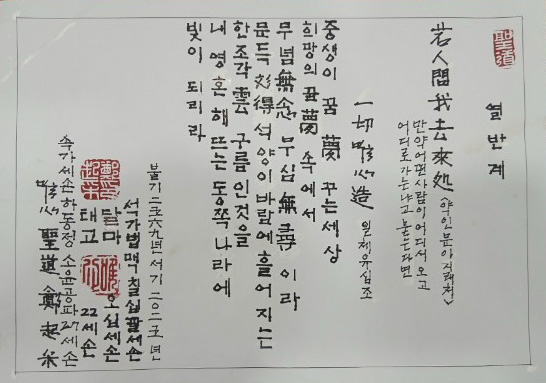 聖道
열반계
若人問我去來処 (약인문아거래처)
만약어떤사람이 어디서 오고
어디로가는냐고 묻는다면
一切唯心造 일체유심조
중생이 꿈 夢 꾸는세상
희망의 꿈夢 속에서
무념無念 무심 無 이라
문득 석양이바람에흩어지는
한조각 雲 구름인것을
내 영혼 해뜨는 동쪽나라에
빛이 되리라
불기 二五六九년 서기 二0二五년
석가법맥칠십팔세손
달마 오십세손
태고 22세손
속가세손하동정 소윤공파27세손
唯心 聖道 鄭起